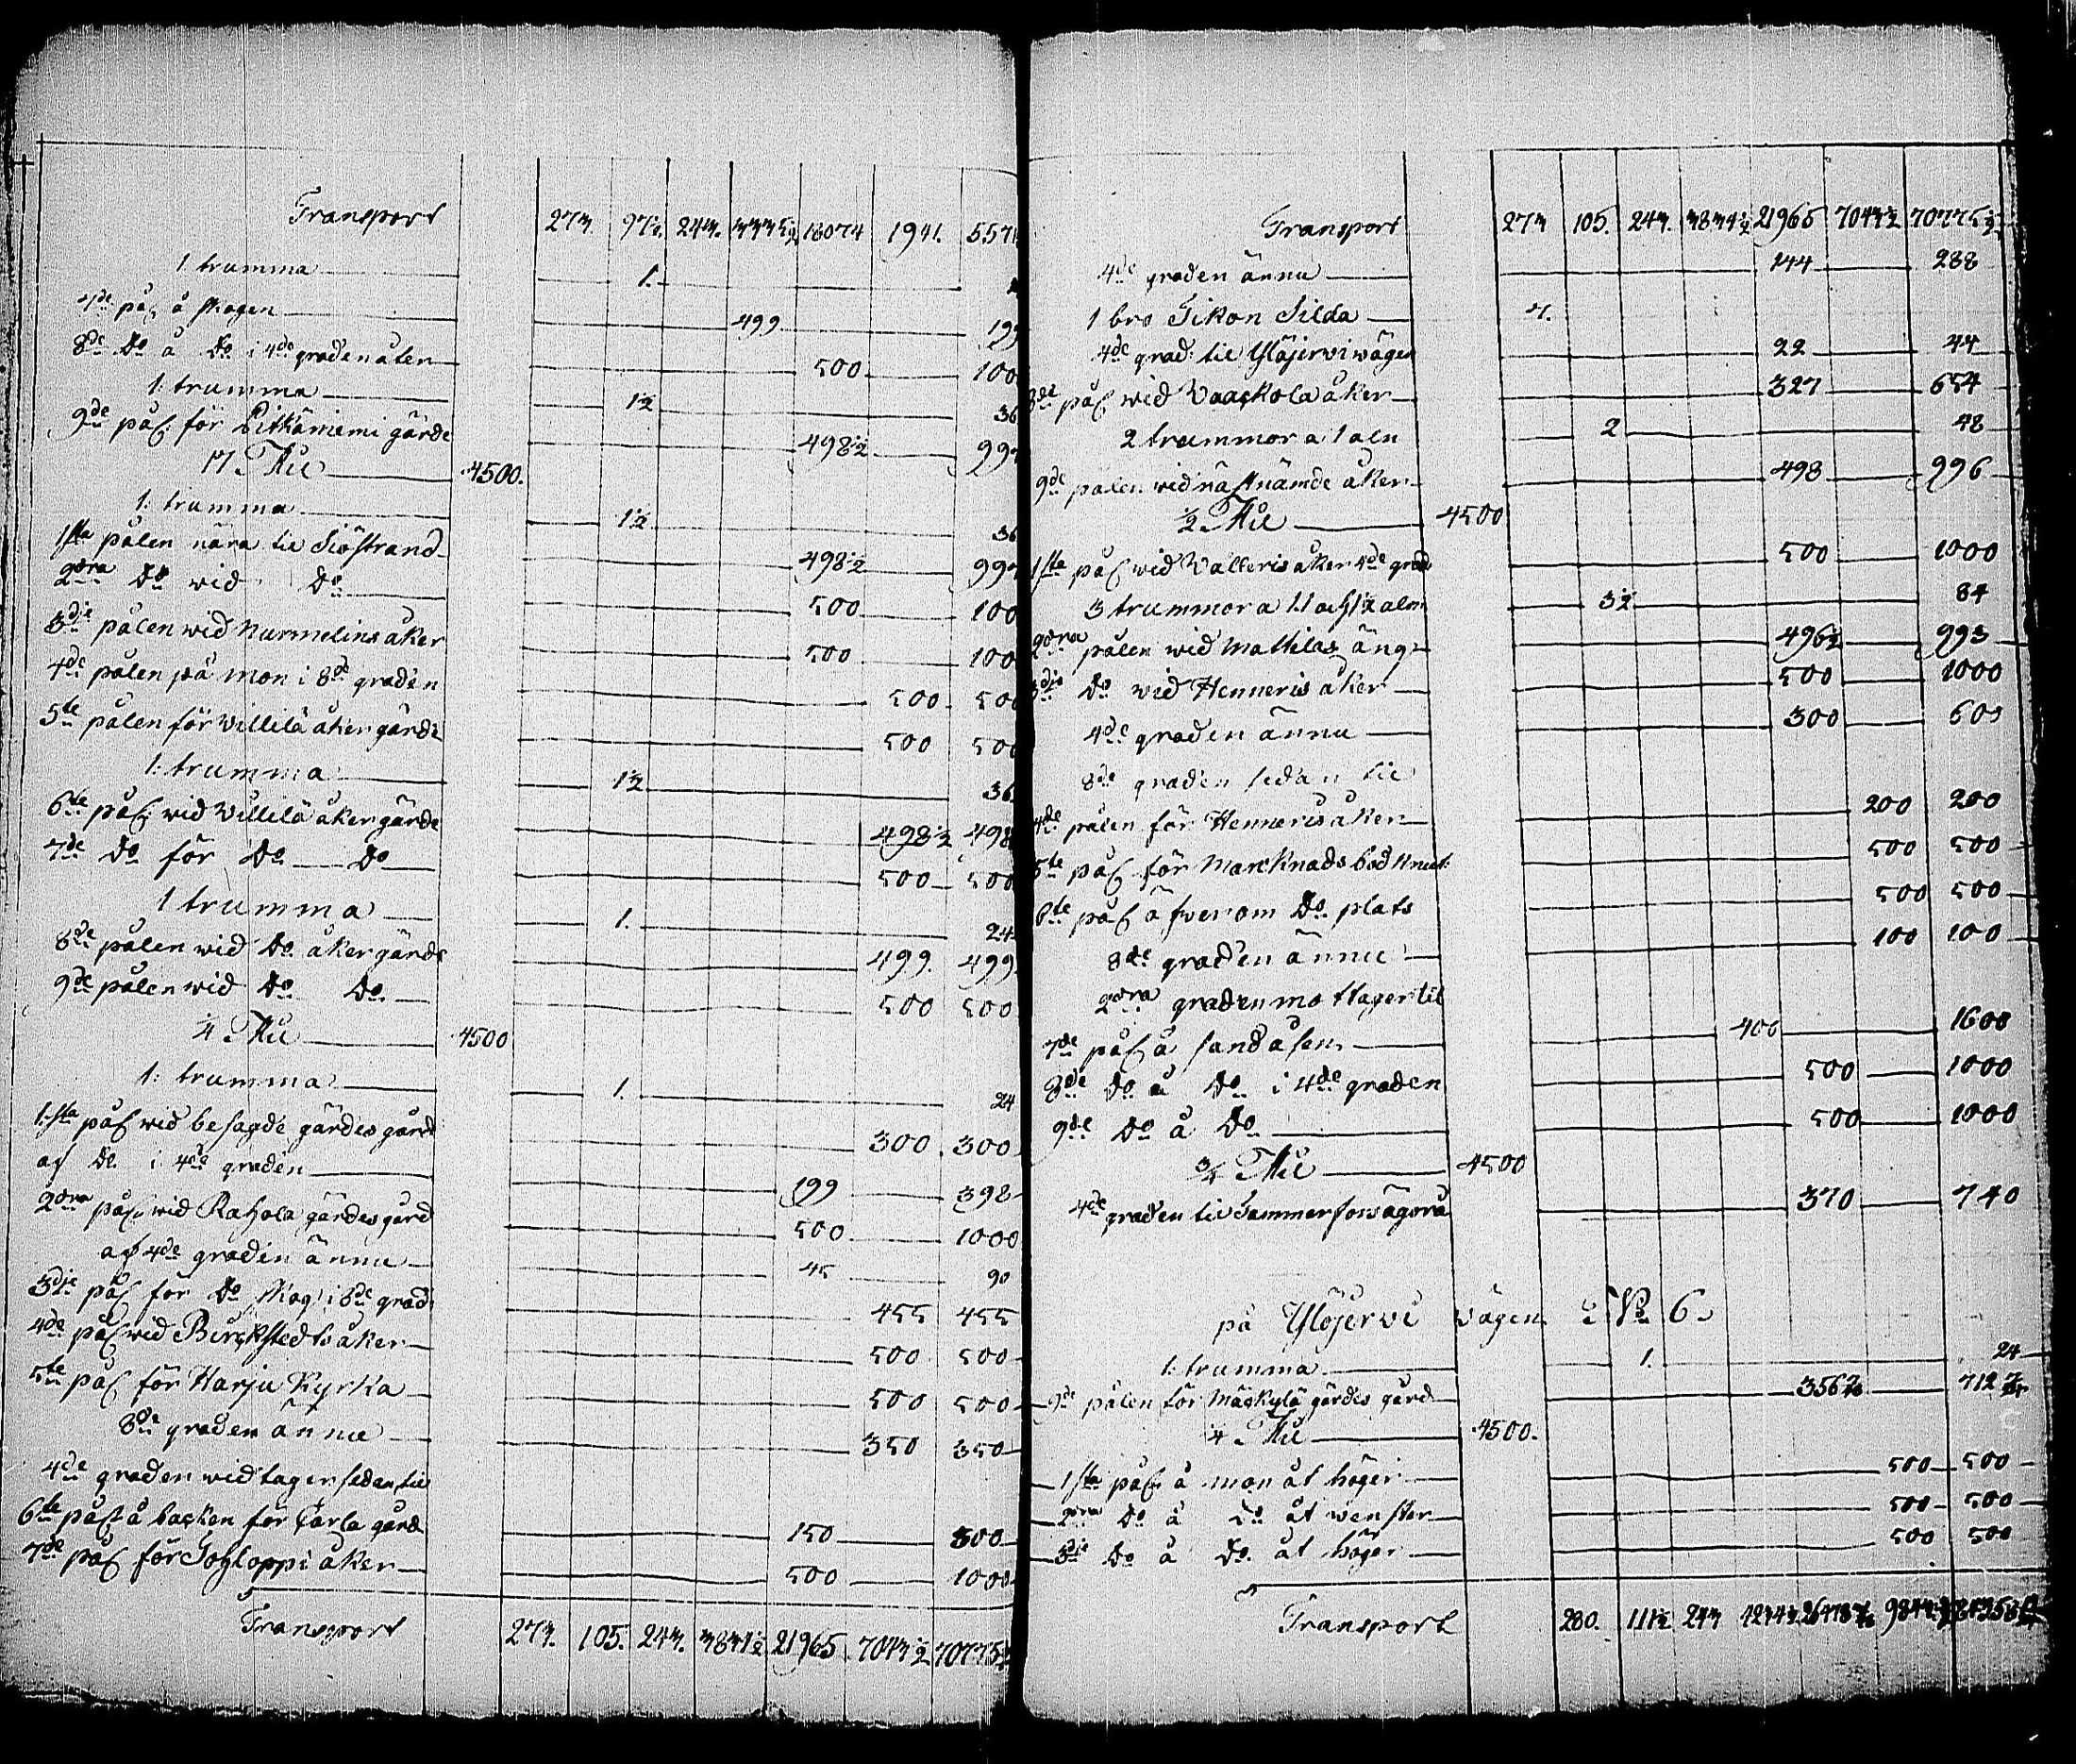 Transport 273. 97½. 243. 3335½ 18074 1941. 557
1 trumma 1.
7de påf å skogen 499 199
8de Do å Do i 4de graden åter 500 100
1: trumma 1½ 36
9de påf. för Pitkäniemi gärde 498½ 997
Mil 4500.
1: trumma 1½ 36
1sta pålen nära til Siöstrand 498½ 997
2dra Do wid Do 500 100
3die pålen wid Nurmelins åker 500 100
4de pålen på mon i 8de graden 500 500
5te pålen för Villilä åker gärde 500 500
1: trumma 1½ 36
6te påf. wid Villilä åker gärde 498½ 498
7de Do för Do Do 500 500
1 trumma 1. 24
8de pålen wid Do åker gärde 499. 499
9de pålen wid Do Do 500 500
¼ Mil 4500
1: trumma 1. 24
1:sta påf wid besagde gärdes gård 300 300
af Do i 4de graden 199 398
2dra påf. wid Rahola gärdes gård 500 1000
af 4de graden ännu 45 90
3die påf för Do skog i 8de grad 455 455
4de påf wid Birckstedts åker 500 500
5te påf för Harju Kyrka 500 500
8de graden ännu 350 350
4de graden widtager sedan til
6te påf å backen för Järla gård 150 300
7de påf för Sohloppi åker 500 1000
Transport 273. 105. 243. 3834½ 21965 7043½ 70775½
Transport 273 105. 243. 3834½ 21965 7043½ 70775½
4de graden ännu 144 288
1 bro Tikon Silda 7.
4de grad: til Ylöjerwi wägen 22 44
8de påf wid Vaackola åker 327 654
2 trummor a 1 aln 2 48
9de pålen wid näst nämde åker 498 996
½ Mil 4500
1ste påf wid Valleris åker 4de grad 500 1000
3 trummor a 1.1 och 1½ aln 3½ 84
2dra pålen wid Mattilas äng 496½ 993
3die Do wid Henneris åker 500 1000
4de graden ännu 300 600
8de graden sedan til
4de pålen för Henneris åker 200 200
5te påf för Marcknads bod knut 500 500
6te påf å fwerom Do plats 500 500
8de graden ännu 100 100
2dra graden mottager til
7de påf å sandåsen 400 1600
8de Do å Do i 4de graden 500 1000
9de Do å Do 500 1000
¾ Mil 4500
4de graden til Tammerfors ägora 370 740
på Ylöjerwi Vägen No 6.
1: trumma 1. 24
9de pålen för Mäckylä gärdes gård 712
¼ Mil 4500.
1sta påf. å mon åt höger 500 500
2dra Do å Do åt wenster 500 500
3die Do å Do åt höger 500 500
Transport 280. 111½ 243